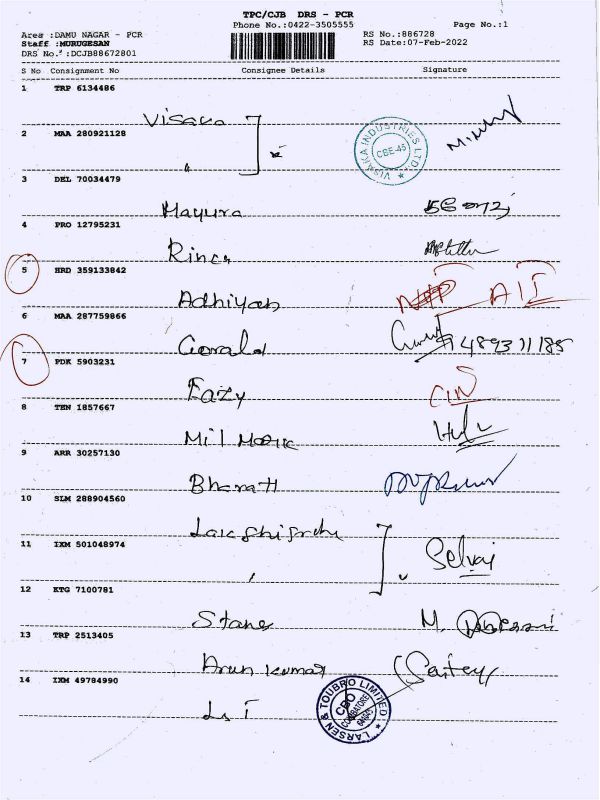 TPC/CJB DRS - PCR
Phone No.:0422-3505555 Page No.:1
Area :DAMU NAGAR - PCR RS No.:886728
Staff :MURUGESAN RS Date:07-Feb-2022
DRS No. :DCJB88672801
S No Consignment No Consignee Details Signature
1 TRP 6134486
Visaka
2 MAA 280921128
"
VISAKA INDUSTRIES LTD. CBE-45
3 DEL 70034479
Mayura
4 PRO 12795231
Rinca
5 HRD 359133842
Adhiyan AII
6 MAA 287759866
Gerald
7 PDK 5903231
Eazy CIN
8 TEN 1857667
Mil
9 ARR 30257130
Bharath
10 SLM 288904560
11 IXM 501048974 Selvaj
12 KTG 7100781
Stanes M.
13 TRP 2513405
Arun Kumar
14 IXM 49784990
L&T
LARSEN & TOUBRO LIMITED CBO COIMBATORE